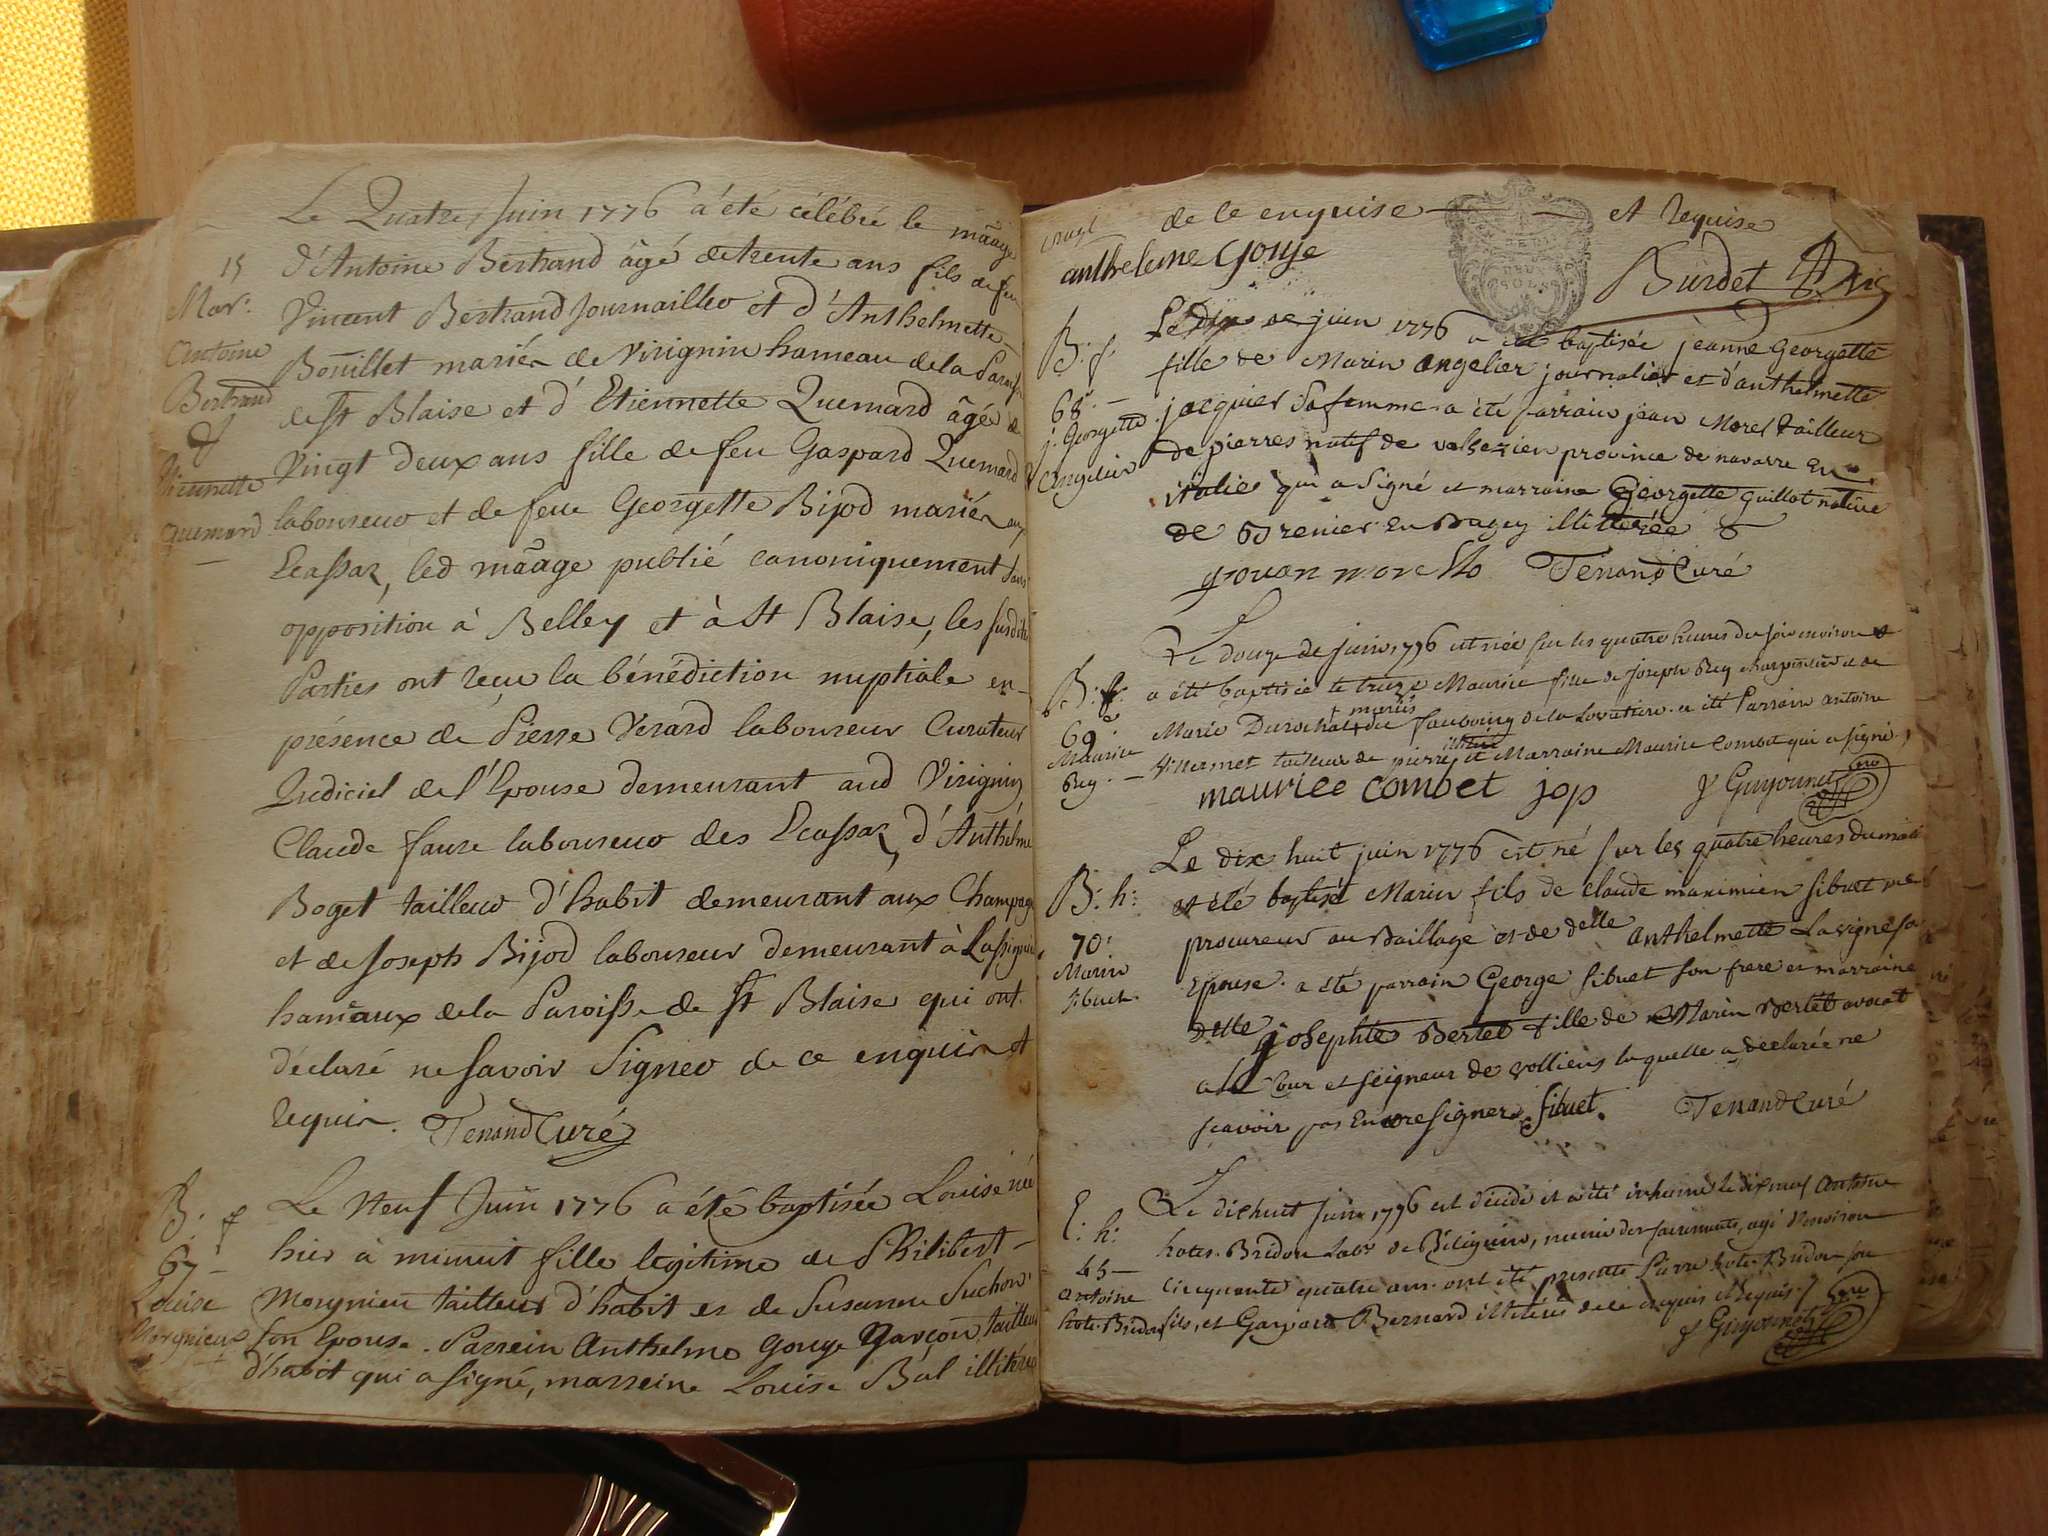 Le Quatre Juin 1776 a été célébré le māage
15 d'Antoine Bertrand âgé de trente ans fils de feu
Mar: Vincent Bertrand Journailleu et d'Anthelmette
Antoine Boüillet mariés de Virignin hameau de la Paroisse
Bertrand de St Blaise et d'Etiennette Quemard âgée de
& Vingt deux ans fille de feu Gaspard Quemard
Etiennette laboureur et de feue Georgette Bijod mariés aux
Quemard Ecassaz, led māage publié canoniquement sans
opposition à Belley et à St Blaise, les susdites
Parties ont reçu la bénédiction nuptiale en
présence de Pierre Verard laboureur Curateur
Judiciel de l'Epouse demeurant aud Virignin
Claude faure laboureur des Ecassaz, d'Anthelme
Boget tailleur d'habit demeurant aux Champagne
et de Joseph Bijod laboureur demeurant à
hameaux de la Paroisse de St Blaise qui ont
déclaré ne savoir Signer de ce enquis et
requis. Tenand Curé
B: f Le Neuf Juin 1776 a été baptisée Louise née
67 hier à minuit fille legitime de Philibert
Louise Morgnieu tailleur d'habit et de Susanne Suchon
Morgnieux son Epouse. Parrein Anthelme Gouje garçon tailleur
d'habit qui a signé, marreine Louise Bal illitérée
de ce enquise et requise
anthelme Gouje Burdet
B: f: Le Dix de juin 1776 a été baptisée jeanne Georgette
68 fille de Marin Angelier journalier et d'anthelmette
j. Georgette jacquier Sa femme a été parrain jean Morel tailleur
Angelier de pierres natif de province de navarre en
italie qui a signé et marraine Georgette Guillot native
de Brenier En Bugey illitérée &
giouan morello Tenand Curé
Le douze de Juin 1776 est née sur les quatre heures du soir environ &
B: f: a été baptisée le treize Maurice fille de Joseph Rey charpentier et de
69 Marie Durochat mariés du faubourg de la . a été Parrain Antoine
Maurice Vuillermet tailleur de pierre illitéré et Marraine Maurice Combet qui a signé.
Rey. maurice combet jop J Guyounet
Le dix huit juin 1776 est né sur les quatre heures du matin
B: h: et été baptisé Marin fils de claude maximien Sibuet me
70 procureur au Baillage et de delle Anthelmette Lavigne sa
Marin Epouse. a été parrain George Sibuet son frere et marraine
Sibuet. Delle josephte Bertet fille de Marin Bertet avocat
a la Cour et seigneur de volliens laquelle a declaré ne
scavoir pas Encore signer. Sibuet. Tenand Curé
Le dixhuit Juin 1776 est décédé et a été inhumé le dix neuf Antoine
E: h: hote-Bridon Labr de , munis des sacrements, agé d'environ
45 cinquante quatre ans ont été présents Pierre hote-Bridon son
Antoine fils, et Bernard illitérés de ce enquis et requis.
hote-Bridon J Guyounet